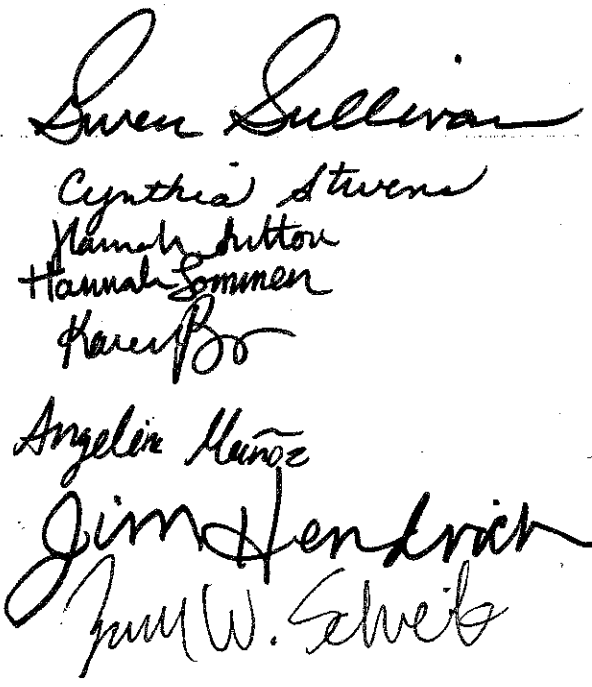 Gwen Sullivan
Cynthia Stevens
Hannah Sutton
Hannah Sommen
Karen
Angelin Muñoz
Jim Hendrich
W.